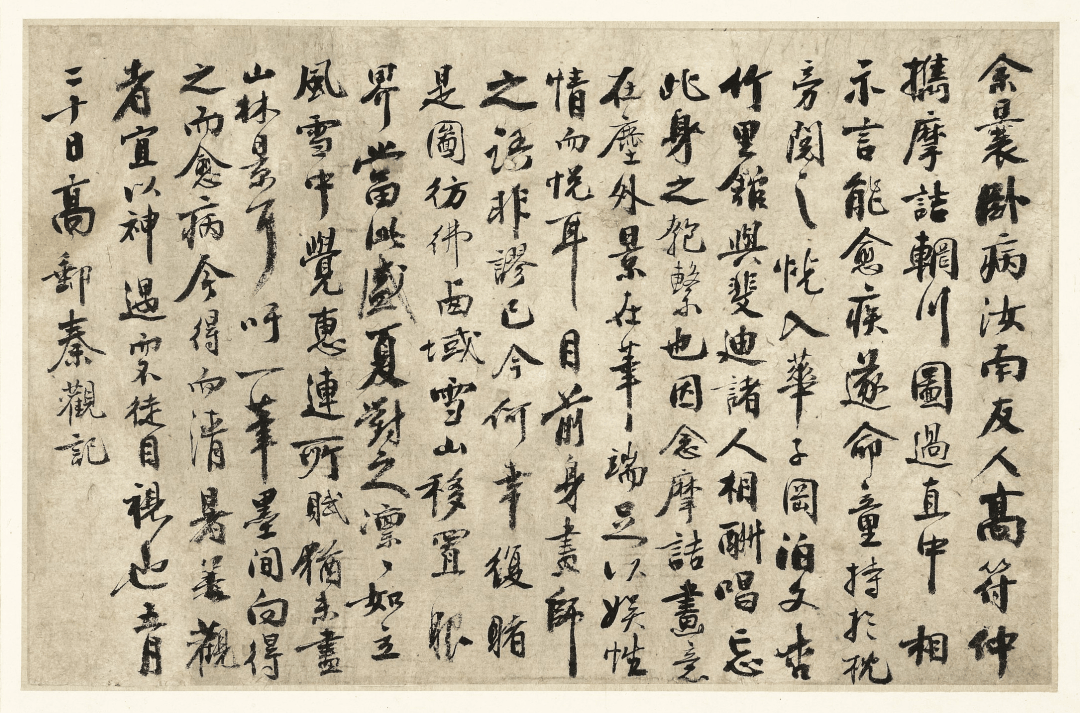 余曩卧病汝南友人高符仲
攜摩詰輞川圖過直中相
示言能愈疾遂命童持於枕
旁閱之恍入華子岡泊文杏
竹里館與斐迪諸人相酬唱忘
此身之匏繫也因念摩詰畫意
在塵外景在筆端足以娛性
情而悅耳目前身畫師
之語非謬已今何幸復睹
是圖彷彿西域雪山移置眼
界當此盛夏對之凛〻如立
風雪中覺惠連所賦猶未盡
山林景耳吁一筆墨間向得
之而愈病今得而清暑善觀
者宜以神遇而不徒目視也五月
二十日高郵秦觀記